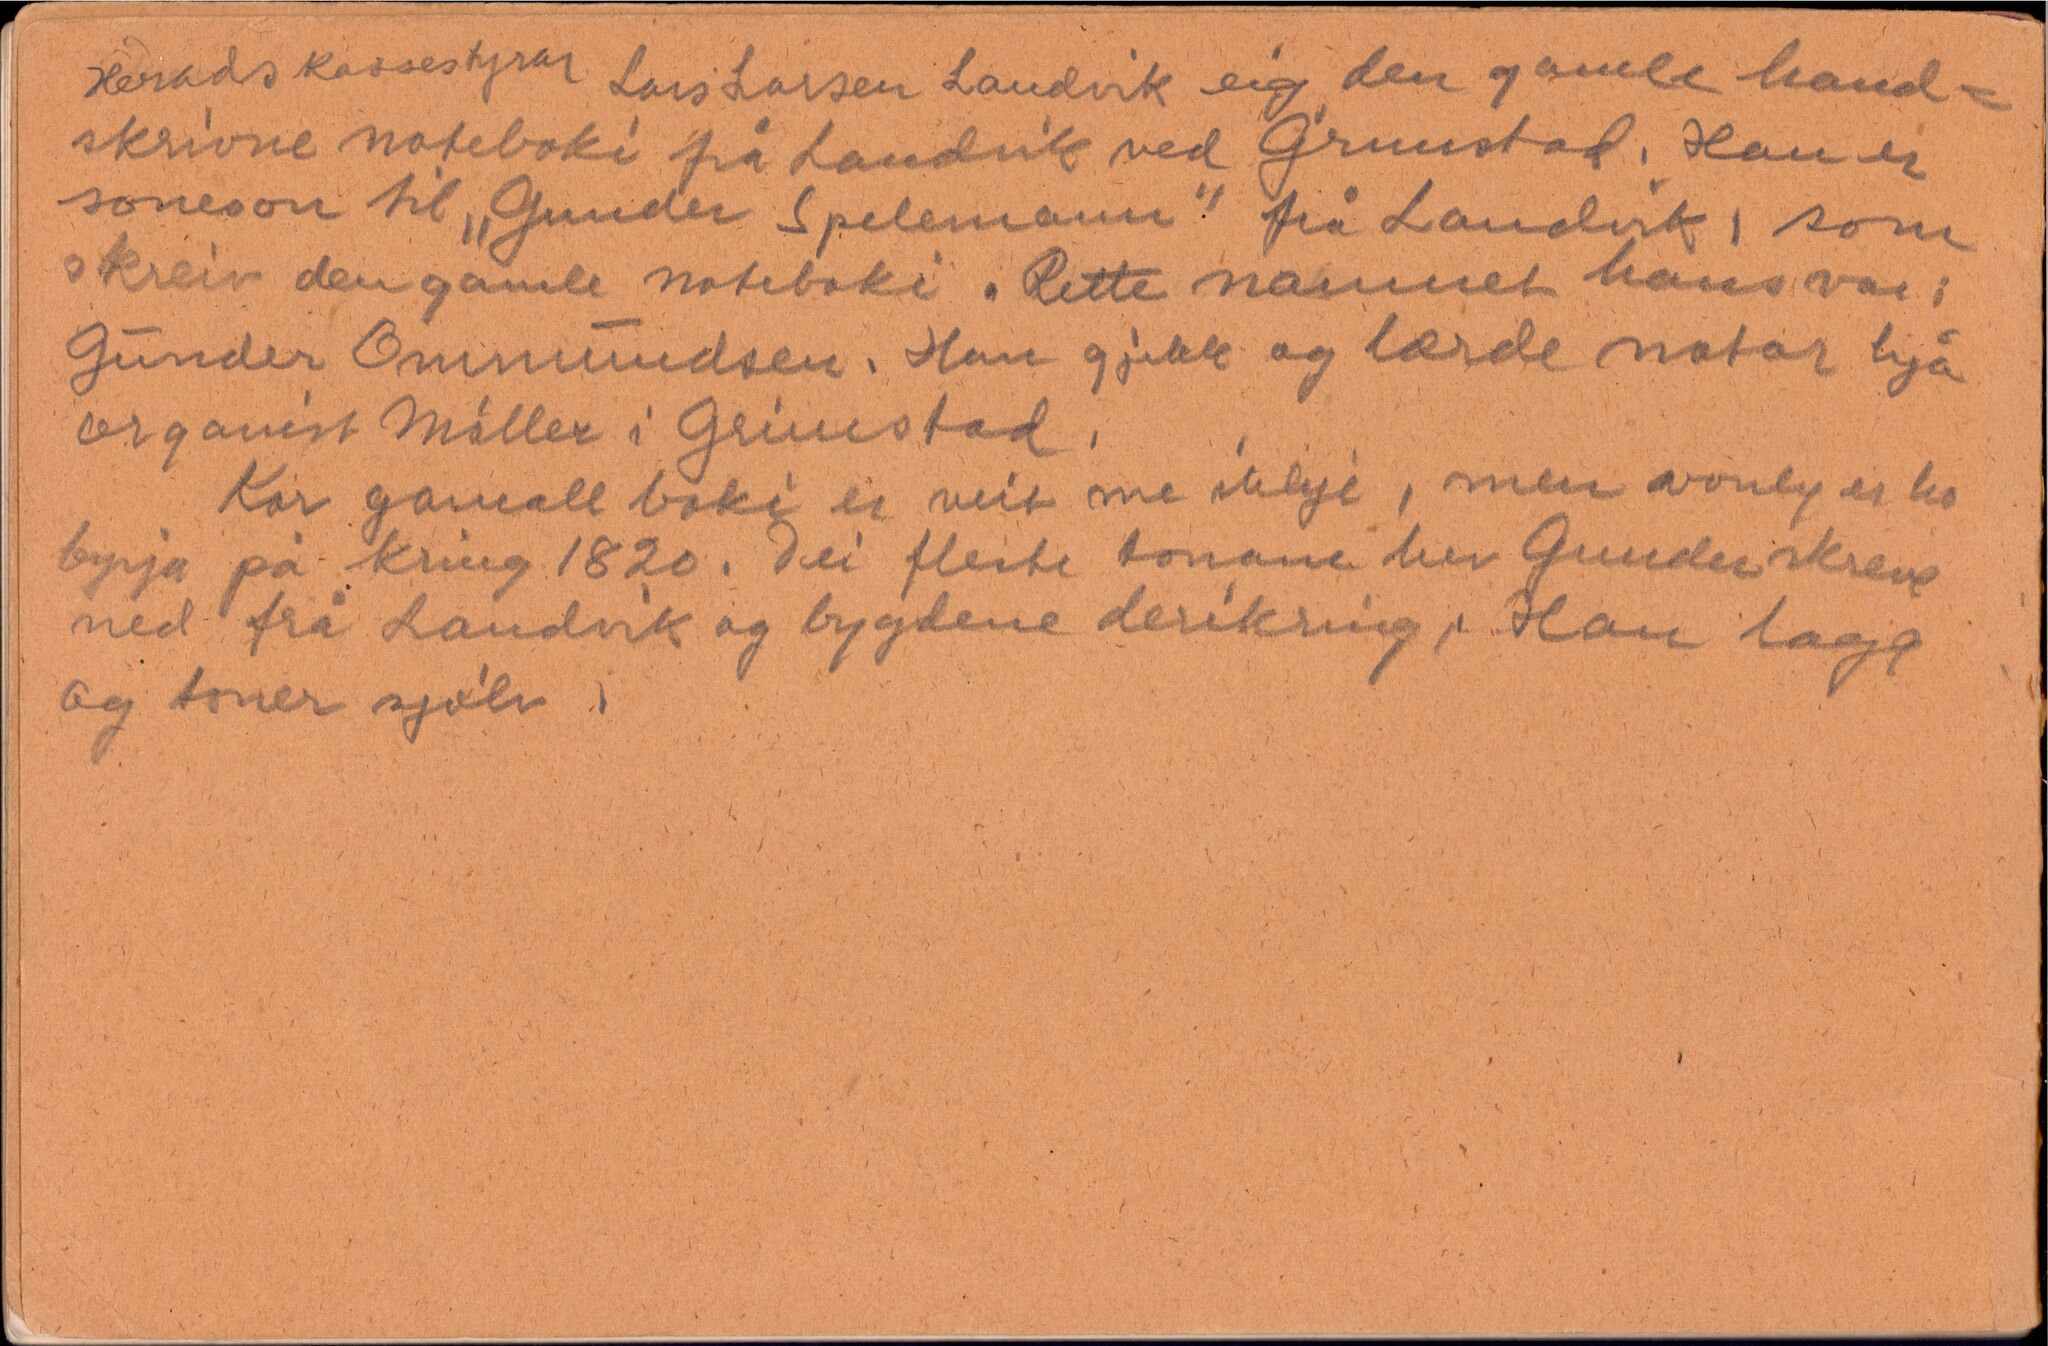 Herads kassestyrar Lars Larsen Landvik eig den gamle hand=
skrivne noteboki på Landvik ved Grimstad. Han er
soneson til „Gunder Spelemann" frå Landvik, som
skreiv den gamle noteboki. Rette namnet hans var:
Gunder Ommundsen. Han gjekk og lærde notar hjå
organist Möller i Grimstad.
Kor gamall boki er veit me ikkje, men vonleg er ho
byrja på kring 1820. Dei fleste tonane hev Gunder skreve
ned frå Landvik og bygdene derikring. Han laga
og toner sjölv.